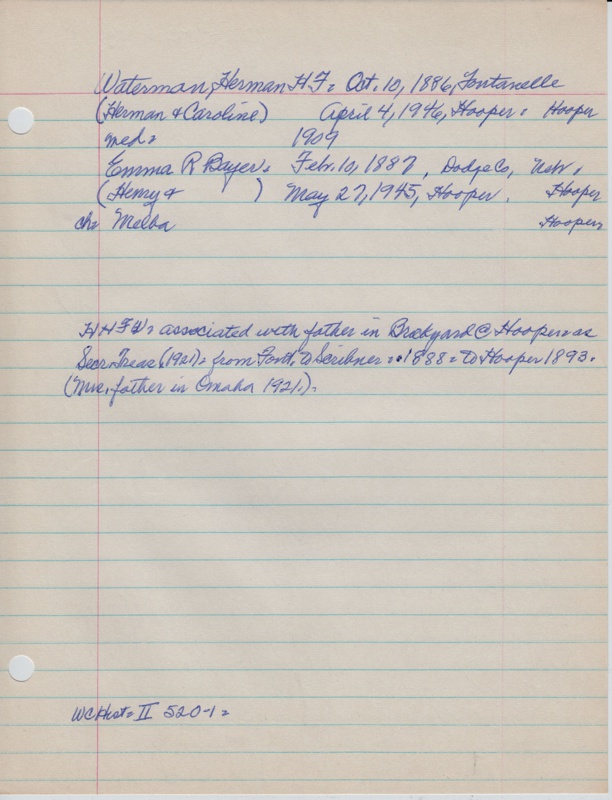 Waterman, Herman H F = Oct. 10, 1886, Fontanelle
(Herman & Caroline) April 4, 1946, Hooper = Hooper
med = 1909
Emma R Bayer = Feb. 10, 1887, Dodge Co, Nebr.
(Henry & ) May 27, 1945, Hooper. Hooper
ch = Melba Hooper
H H F W = associated with father in Brickyard @ Hooper = as
Secr. Treas (1921) = from Font. to Scribner = 1888 = to Hooper 1893.
( father in Omaha 1921.) =
WC Hist = II 520-1 =